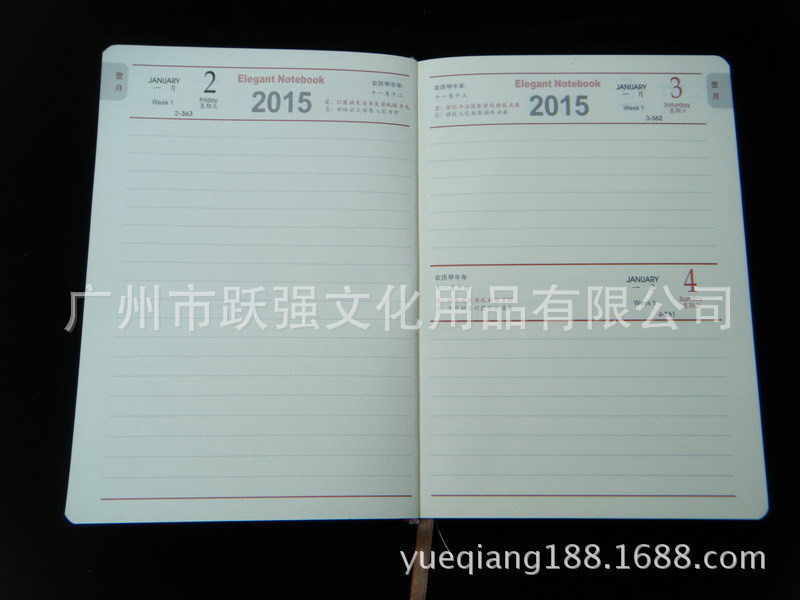 壹月
JANUARY
一 月
Week 1
2
Friday
星期五
2-363
Elegant Notebook
2015
农历甲午年
十一月十二
农历甲午年
十一月十三
Elegant Notebook
2015
JANUARY
一 月
Week 1
3
Saturday
星期六
3-362
壹月
农历甲午年
JANUARY
一
Week 1
4
Sunday
星期日
广州市跃强文化用品有限公司
yueqiang188.1688.com